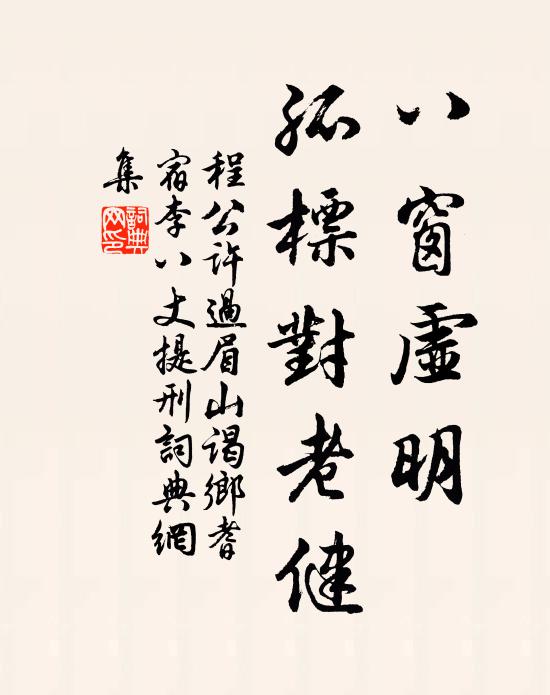 八窗虛明
孤標對老健
程公許過眉山謁鄉耆
宿李八丈提刑詞典網
集
詞典
网印